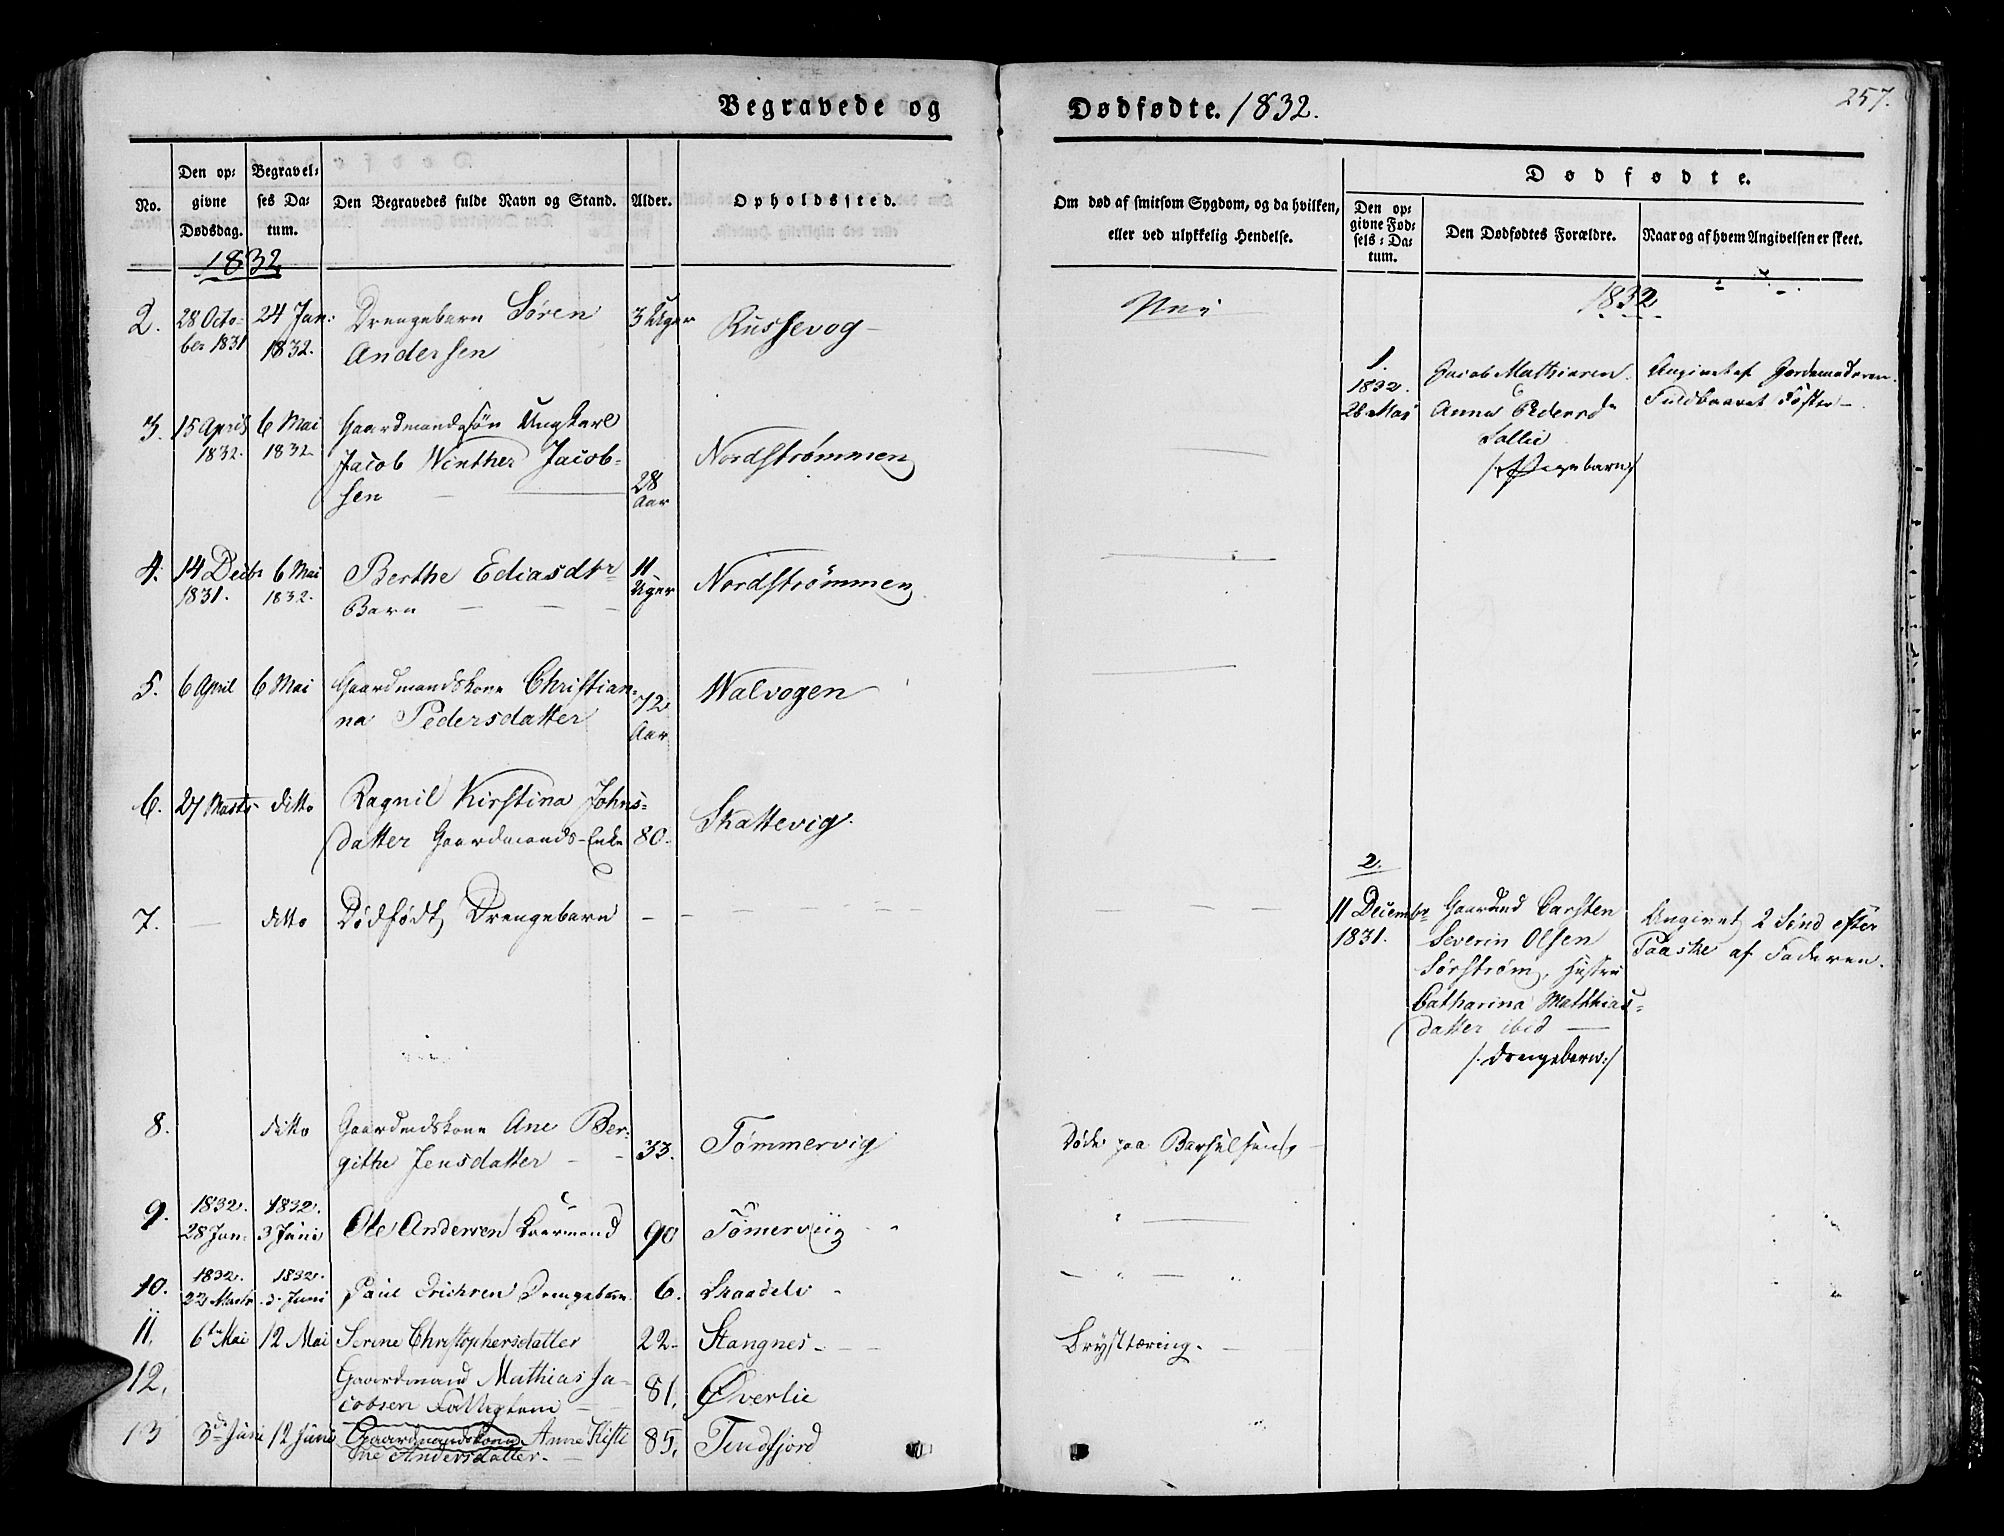 Begravede og
Dødfødte. 1832.
257.
No.
Den opgivne Dødsdag.
Begravelses Datum.
Den Begravedes fulde Navn og Stand.
Alder.
Opholdssted.
Om død af smitsom Sygdom, og da hvilken, eller ved ulykkelig Hendelse.
Dødfødte.
Den opgivne Fødsels-Datum.
Den Dødfødtes Forældre.
Naar og af hvem Angivelsen er skeet.
1832
1832
2. 28 October 1831 24 Jan: 1832. Drengebarn Søren Andersen 3 Uger Russevog
1. 1832. 28 Mai Jacob Mathiasen Anna Pedersdr Sollie
Angivet af Jordemoderen. Fuldbaaret Foster
3. 15 April 1832. 6 Mai 1832 Gaardmandssøn Ungkarl Jacob Winther Jacobsen 28 Aar Nordstrømmen
4. 14 Decbr 1831. 6 Mai 1832. Berthe Eliasdtr Barn 11 Uger Nordstrømmen
5. 6 April 6 Mai Gaardmandskone Christianna Pedersdatter 72 Aar Walvogen
6. 27 Marts ditto Ragnil Kirstina Johnsdatter Gaardmands-Enke 80. Skattevig.
7. ditto Dødfødt Drengebarn
2. 11 Decembr 1831. Gaardmd Carsten Severin Olsen Sørstrøm, Hustru Catharina Matthiasdatter ibid
/:Drengebarn:/
Angivet 2 Sønd efter Paaske af Faderen.
8. ditto Gaardmdskone Ane Bergithe Jensdatter 33. Tømmervig Døde paa Barselseng
9. 1832. 28 Jan. 1832. 3 Juni Ole Andersen 90 Tømerviig
10. 1832. 22 Marts 1832. 3. Juni Paul Erichsen Drengebarn 6. Skaadelv
11. 6te Mai 12 Mai Serine Christophersdatter 22. Stangnes Brysttæring.
12. Gaardmand Mathias Jacobsen Fattiglem 81. Øverlie
13 3de Juni 12 Juni Gaardmandskone Anne Kistine Andersdatter. 85. Tendfjord